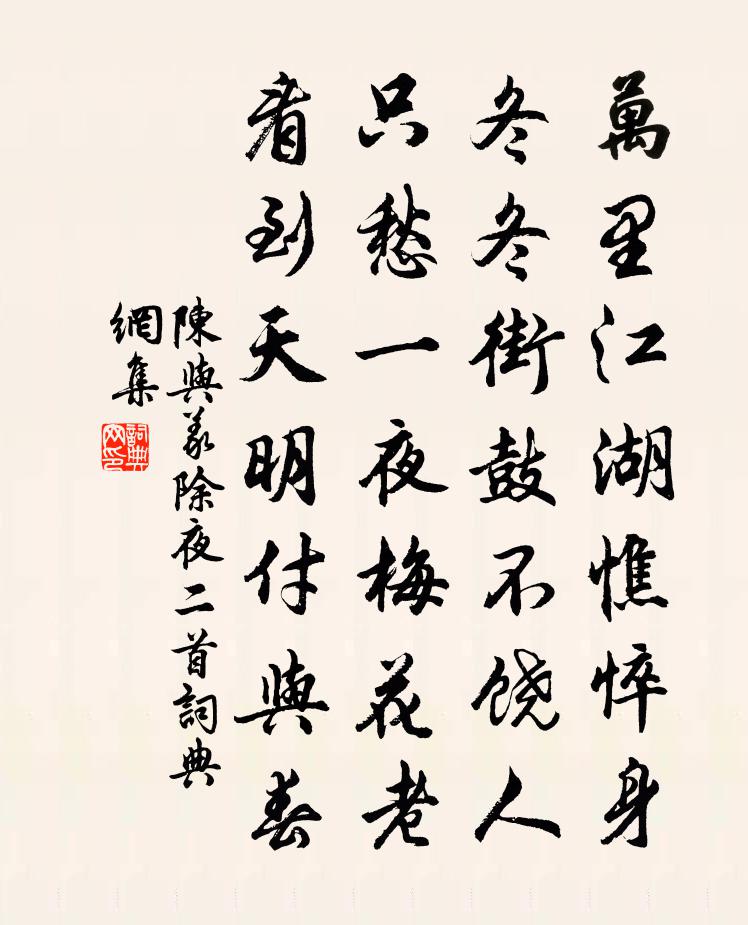 萬里江湖憔悴身
冬冬街鼓不饶人
只愁一夜梅花老
看到天明付與春
陳與義除夜二首詞典
網集
詞典网印